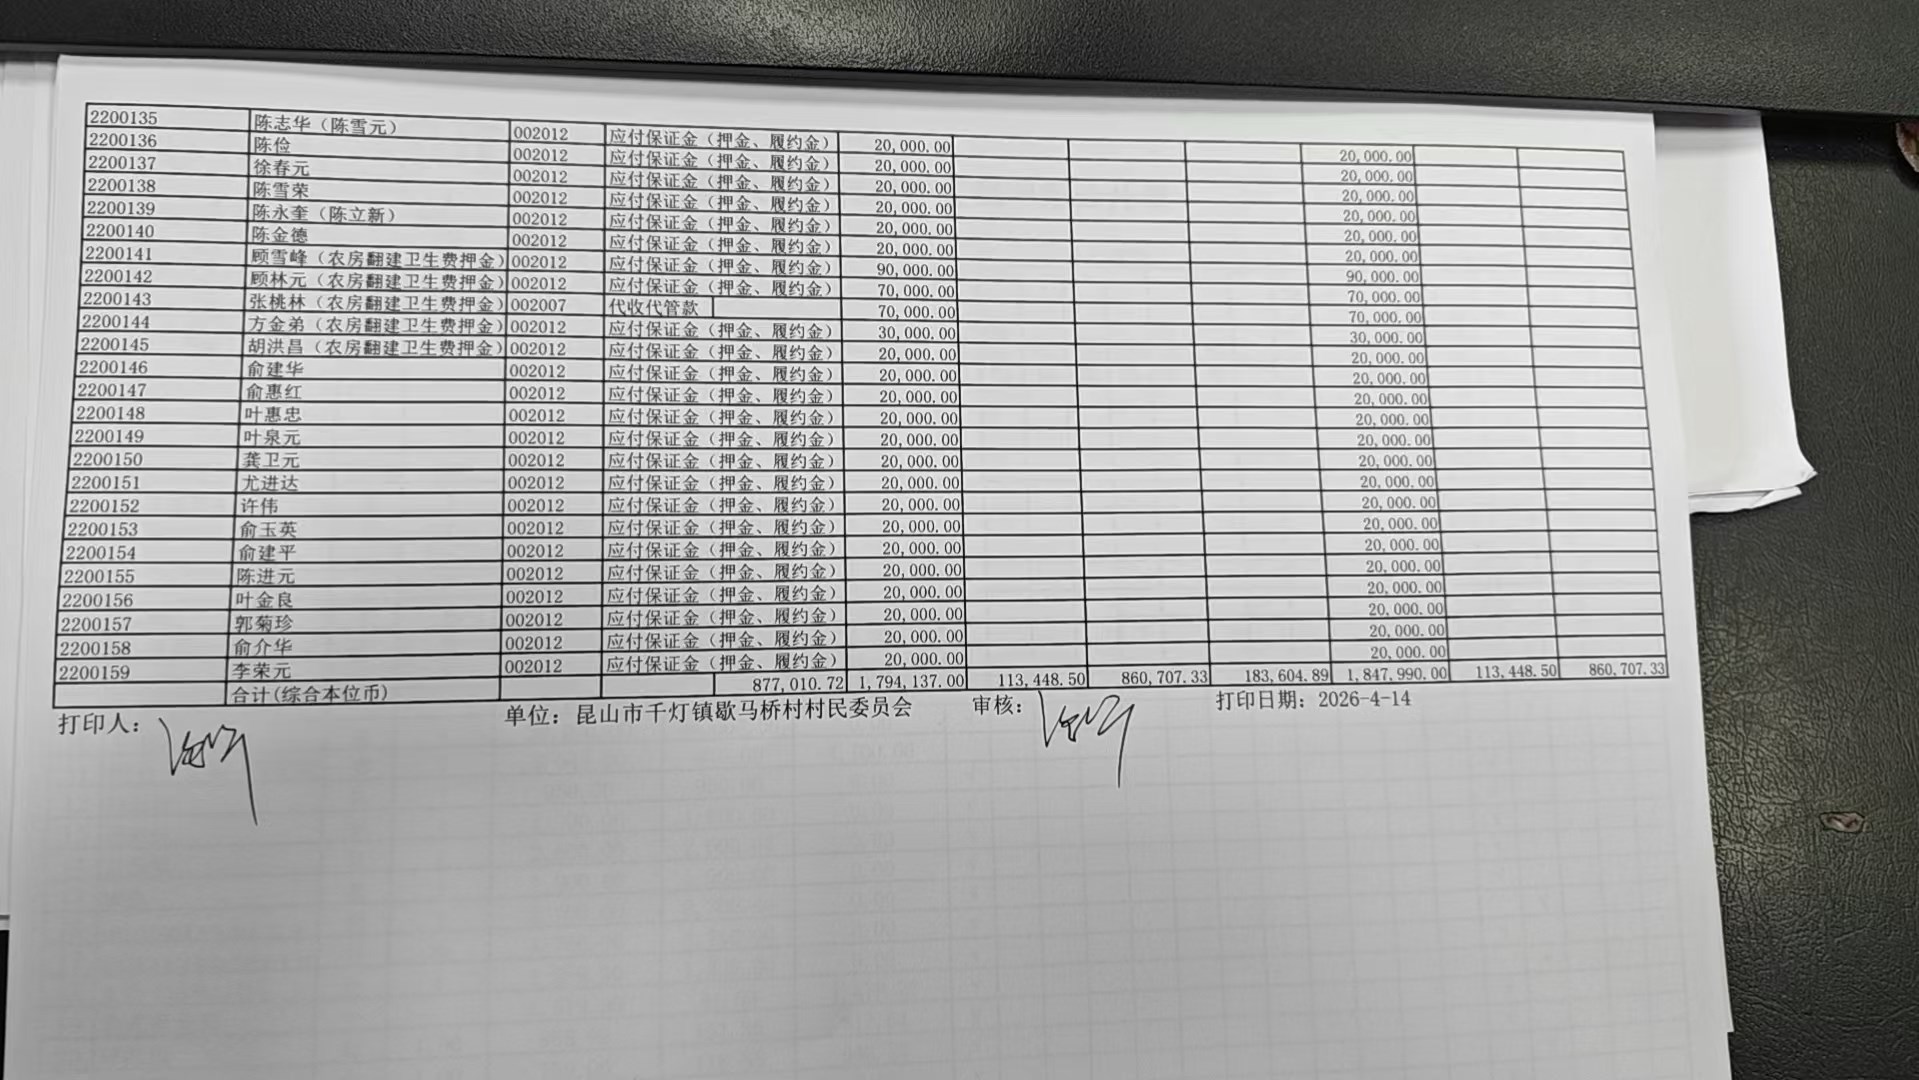 2200135 陈志华（陈雪元） 002012 应付保证金（押金、履约金） 20,000.00 20,000.00
2200136 陈俭 002012 应付保证金（押金、履约金） 20,000.00 20,000.00
2200137 徐春元 002012 应付保证金（押金、履约金） 20,000.00 20,000.00
2200138 陈雪荣 002012 应付保证金（押金、履约金） 20,000.00 20,000.00
2200139 陈永奎（陈立新） 002012 应付保证金（押金、履约金） 20,000.00 20,000.00
2200140 陈金德 002012 应付保证金（押金、履约金） 20,000.00 20,000.00
2200141 顾雪峰（农房翻建卫生费押金） 002012 应付保证金（押金、履约金） 90,000.00 90,000.00
2200142 顾林元（农房翻建卫生费押金） 002012 应付保证金（押金、履约金） 70,000.00 70,000.00
2200143 张桃林（农房翻建卫生费押金） 002007 代收代管款 70,000.00 70,000.00
2200144 方金弟（农房翻建卫生费押金） 002012 应付保证金（押金、履约金） 30,000.00 30,000.00
2200145 胡洪昌（农房翻建卫生费押金） 002012 应付保证金（押金、履约金） 20,000.00 20,000.00
2200146 俞建华 002012 应付保证金（押金、履约金） 20,000.00 20,000.00
2200147 俞惠红 002012 应付保证金（押金、履约金） 20,000.00 20,000.00
2200148 叶惠忠 002012 应付保证金（押金、履约金） 20,000.00 20,000.00
2200149 叶泉元 002012 应付保证金（押金、履约金） 20,000.00 20,000.00
2200150 龚卫元 002012 应付保证金（押金、履约金） 20,000.00 20,000.00
2200151 尤进达 002012 应付保证金（押金、履约金） 20,000.00 20,000.00
2200152 许伟 002012 应付保证金（押金、履约金） 20,000.00 20,000.00
2200153 俞玉英 002012 应付保证金（押金、履约金） 20,000.00 20,000.00
2200154 俞建平 002012 应付保证金（押金、履约金） 20,000.00 20,000.00
2200155 陈进元 002012 应付保证金（押金、履约金） 20,000.00 20,000.00
2200156 叶金良 002012 应付保证金（押金、履约金） 20,000.00 20,000.00
2200157 郭菊珍 002012 应付保证金（押金、履约金） 20,000.00 20,000.00
2200158 俞介华 002012 应付保证金（押金、履约金） 20,000.00 20,000.00
2200159 李荣元 002012 应付保证金（押金、履约金） 20,000.00 20,000.00
合计(综合本位币) 877,010.72 1,794,137.00 113,448.50 860,707.33 183,604.89 1,847,990.00 113,448.50 860,707.33
打印人： 单位：昆山市千灯镇歇马桥村村民委员会 审核： 打印日期：2026-4-14